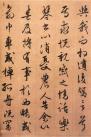 與我而相遺復駕言兮
焉求悦親戚之情話樂
琴書以消憂農人告余
春 將有事 西疇或
巾車或棹孤舟既